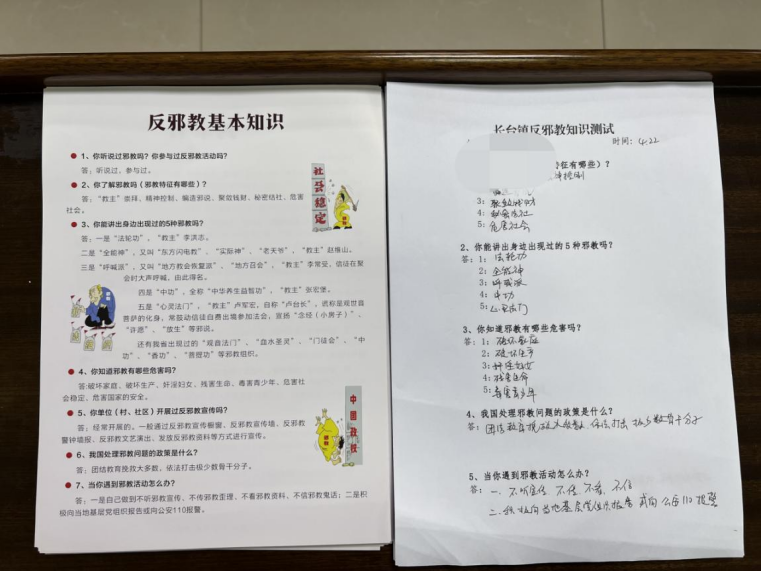 反邪教基本知识
1、你听说过邪教吗？你参与过反邪教活动吗？
答：听说过，参与过。
2、你了解邪教吗（邪教特征有哪些）？
答：“教主”崇拜、精神控制、编造邪说、聚敛钱财、秘密结社、危害
社会。
3、你能讲出身边出现过的5种邪教吗？
答：一是“法轮功”，“教主”李洪志。
二是“全能神”，又叫“东方闪电教”、“实际神”、“老天爷”，“教主”赵维山。
三是“呼喊派”，又叫“地方教会恢复派”、“地方召会”，“教主”李常受，信徒在聚
会时大声呼喊，由此得名。
四是“中功”，全称“中华养生益智功”，“教主”张宏堡。
五是“心灵法门”，“教主”卢军宏，自称“卢台长”，谎称是观世音
菩萨的化身，常鼓动信徒自费出境参加法会，宣扬“念经（小房子）”、
“许愿”、“放生”等邪说。
还有我省出现过的“观音法门”、“血水圣灵”、“门徒会”、“中
功”、“香功”、“菩提功”等邪教组织。
4、你知道邪教有哪些危害吗？
答:破坏家庭、破坏生产、奸淫妇女、残害生命、毒害青少年、危害社
会稳定、危害国家的安全。
5、你单位（村、社区）开展过反邪教宣传吗？
答：经常开展的。一般通过反邪教宣传橱窗、反邪教宣传墙、反邪教
警钟墙报、反邪教文艺演出、发放反邪教资料等方式进行宣传。
6、我国处理邪教问题的政策是什么？
答：团结教育挽救大多数，依法打击极少数骨干分子。
7、当你遇到邪教活动怎么办？
答：一是自己做到不听邪教宣传、不传邪教歪理、不看邪教资料、不信邪教鬼话；二是积
极向当地基层党组织报告或向公安110报警。
社会稳定
邪教
邪教
中国政权
邪教
长台镇反邪教知识测试
时间：4.22
征有哪些）？
神控制
3：聚敛钱财
4：秘密结社
5：危害社会
2、你能讲出身边出现过的5种邪教吗？
答：1：法轮功
2：全能神
3：呼喊派
4：中功
5：心灵法门
3、你知道邪教有哪些危害吗？
答：1：破坏家庭
2：破坏生产
3：奸淫妇女
4：残害生命
5：毒害青少年
4、我国处理邪教问题的政策是什么？
答：团结教育挽救大多数，依法打击极少数骨干分子
5、当你遇到邪教活动怎么办？
答：一、不听宣传 不传 不看 不信
二、积极向当地基层党组织报告 或向公安110报警